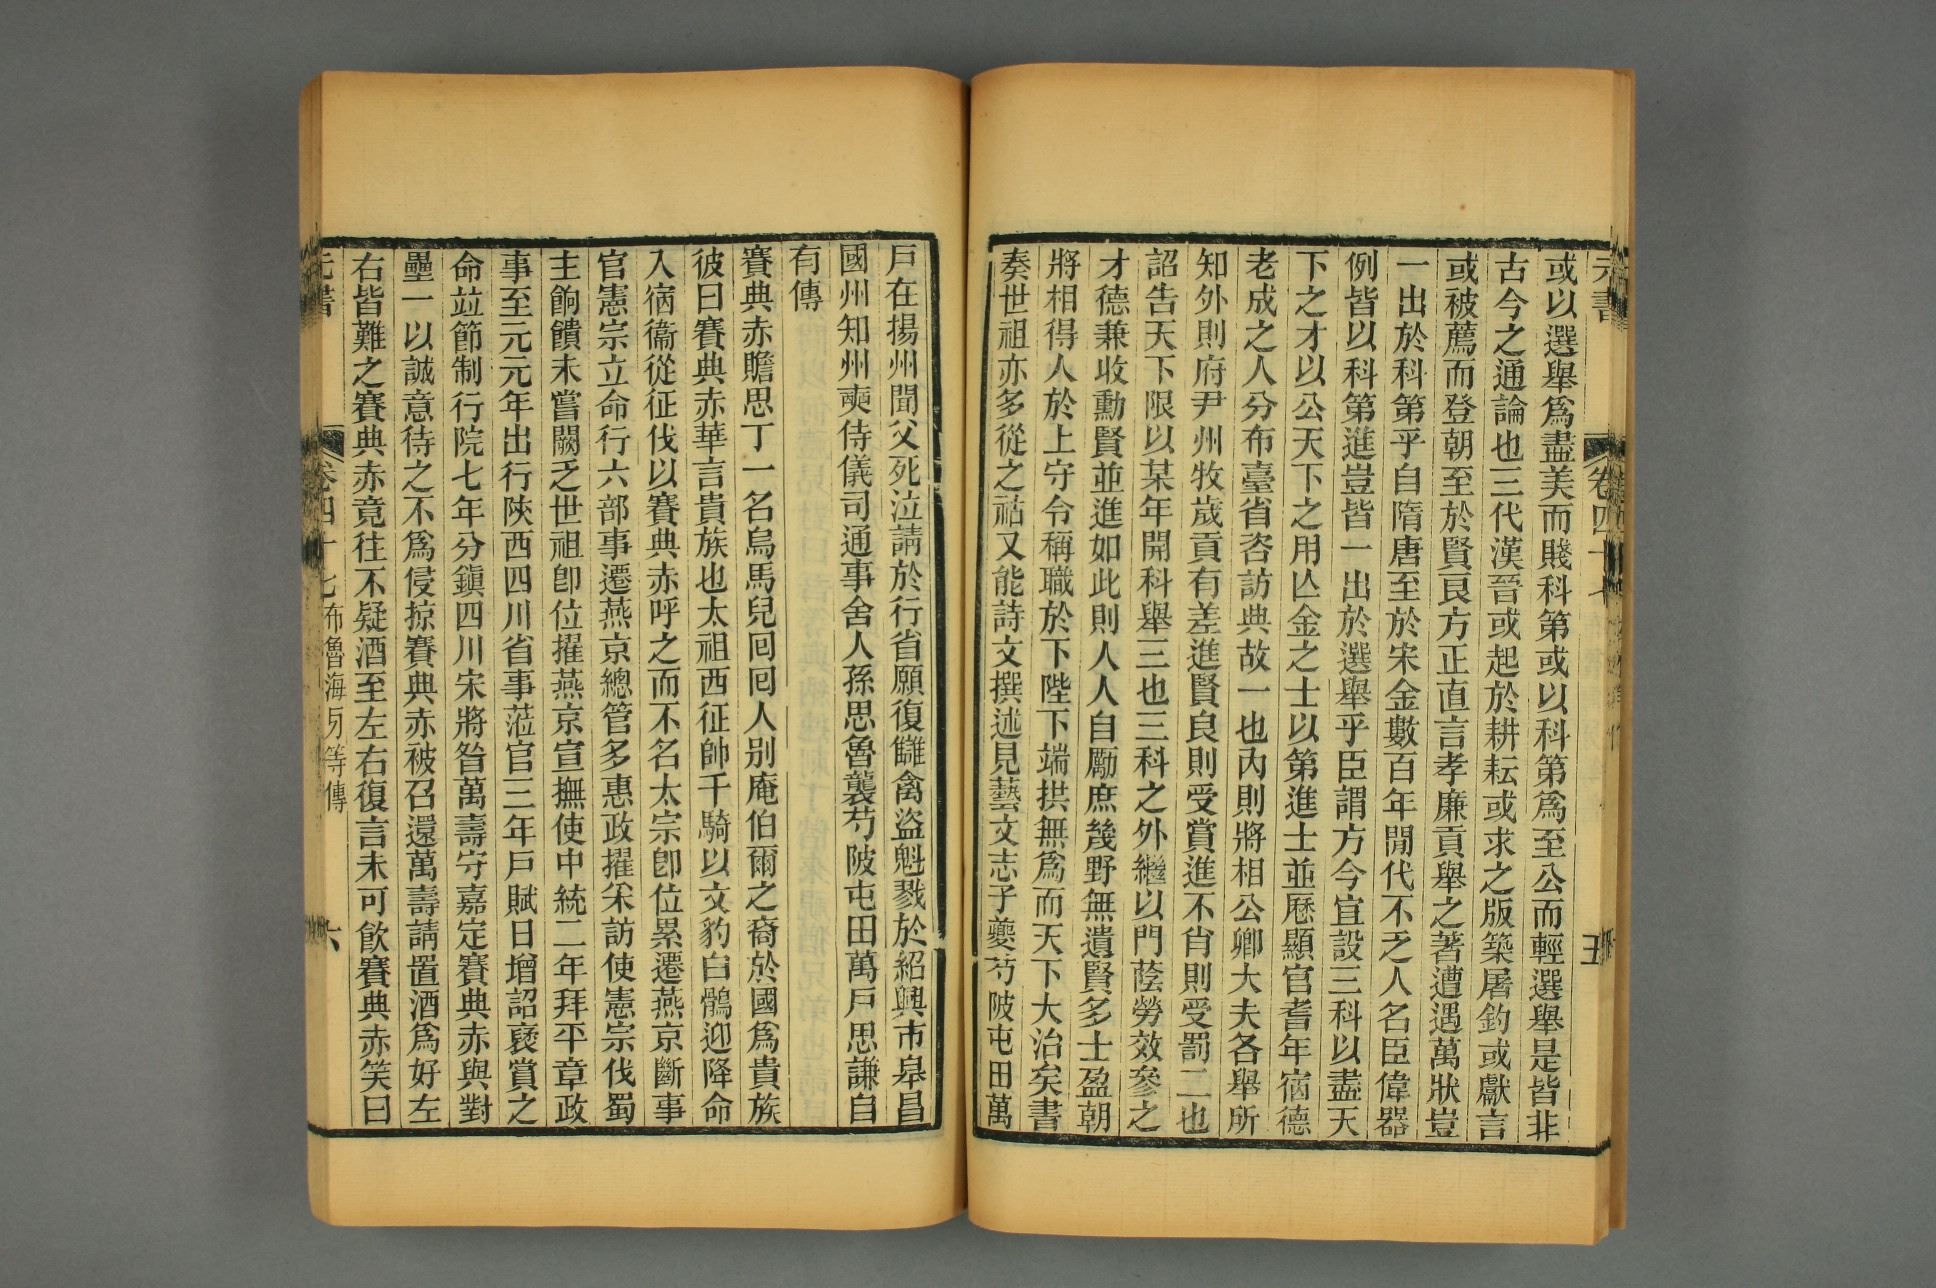 元書
卷四十七
五
或以選舉爲盡美而賤科第或以科第爲至公而輕選舉是皆非
古今之通論也三代漢晉或起於耕耘或求之版築屠釣或獻言
或被薦而登朝至於賢良方正直言孝廉貢舉之著遭遇萬狀豈
一出於科第乎自隋唐至於宋金數百年閒代不乏人名臣偉器
例皆以科第進豈皆一出於選舉乎臣謂方今宜設三科以盡天
下之才以公天下之用亾金之士以第進士並歷顯官耆年宿德
老成之人分布臺省咨訪典故一也內則將相公卿大夫各舉所
知外則府尹州牧歲貢有差進賢良則受賞進不肖則受罰二也
詔告天下限以某年開科舉三也三科之外繼以門蔭勞效參之
才德兼收勳賢並進如此則人人自勵庶幾野無遺賢多士盈朝
將相得人於上守令稱職於下陛下端拱無爲而天下大治矣書
奏世祖亦多從之祜又能詩文撰述見藝文志子夔芍陂屯田萬
戶在揚州聞父死泣請於行省願復讎禽盜魁戮於紹興市皋昌
國州知州奭侍儀司通事舍人孫思魯襲芍陂屯田萬戶思謙自
有傳
賽典赤贍思丁一名烏馬兒囘囘人別庵伯爾之裔於國爲貴族
彼曰賽典赤華言貴族也太祖西征帥千騎以文豹白鶻迎降命
入宿衞從征伐以賽典赤呼之而不名太宗卽位累遷燕京斷事
官憲宗立命行六部事遷燕京總管多惠政擢采訪使憲宗伐蜀
主餉饋未嘗闕乏世祖卽位擢燕京宣撫使中統二年拜平章政
事至元元年出行陝西四川省事蒞官三年戶賦日增詔襃賞之
命竝節制行院七年分鎭四川宋將昝萬壽守嘉定賽典赤與對
壘一以誠意待之不爲侵掠賽典赤被召還萬壽請置酒爲好左
右皆難之賽典赤竟往不疑酒至左右復言未可飮賽典赤笑曰
元書
卷四十七
布魯海牙等傳
六